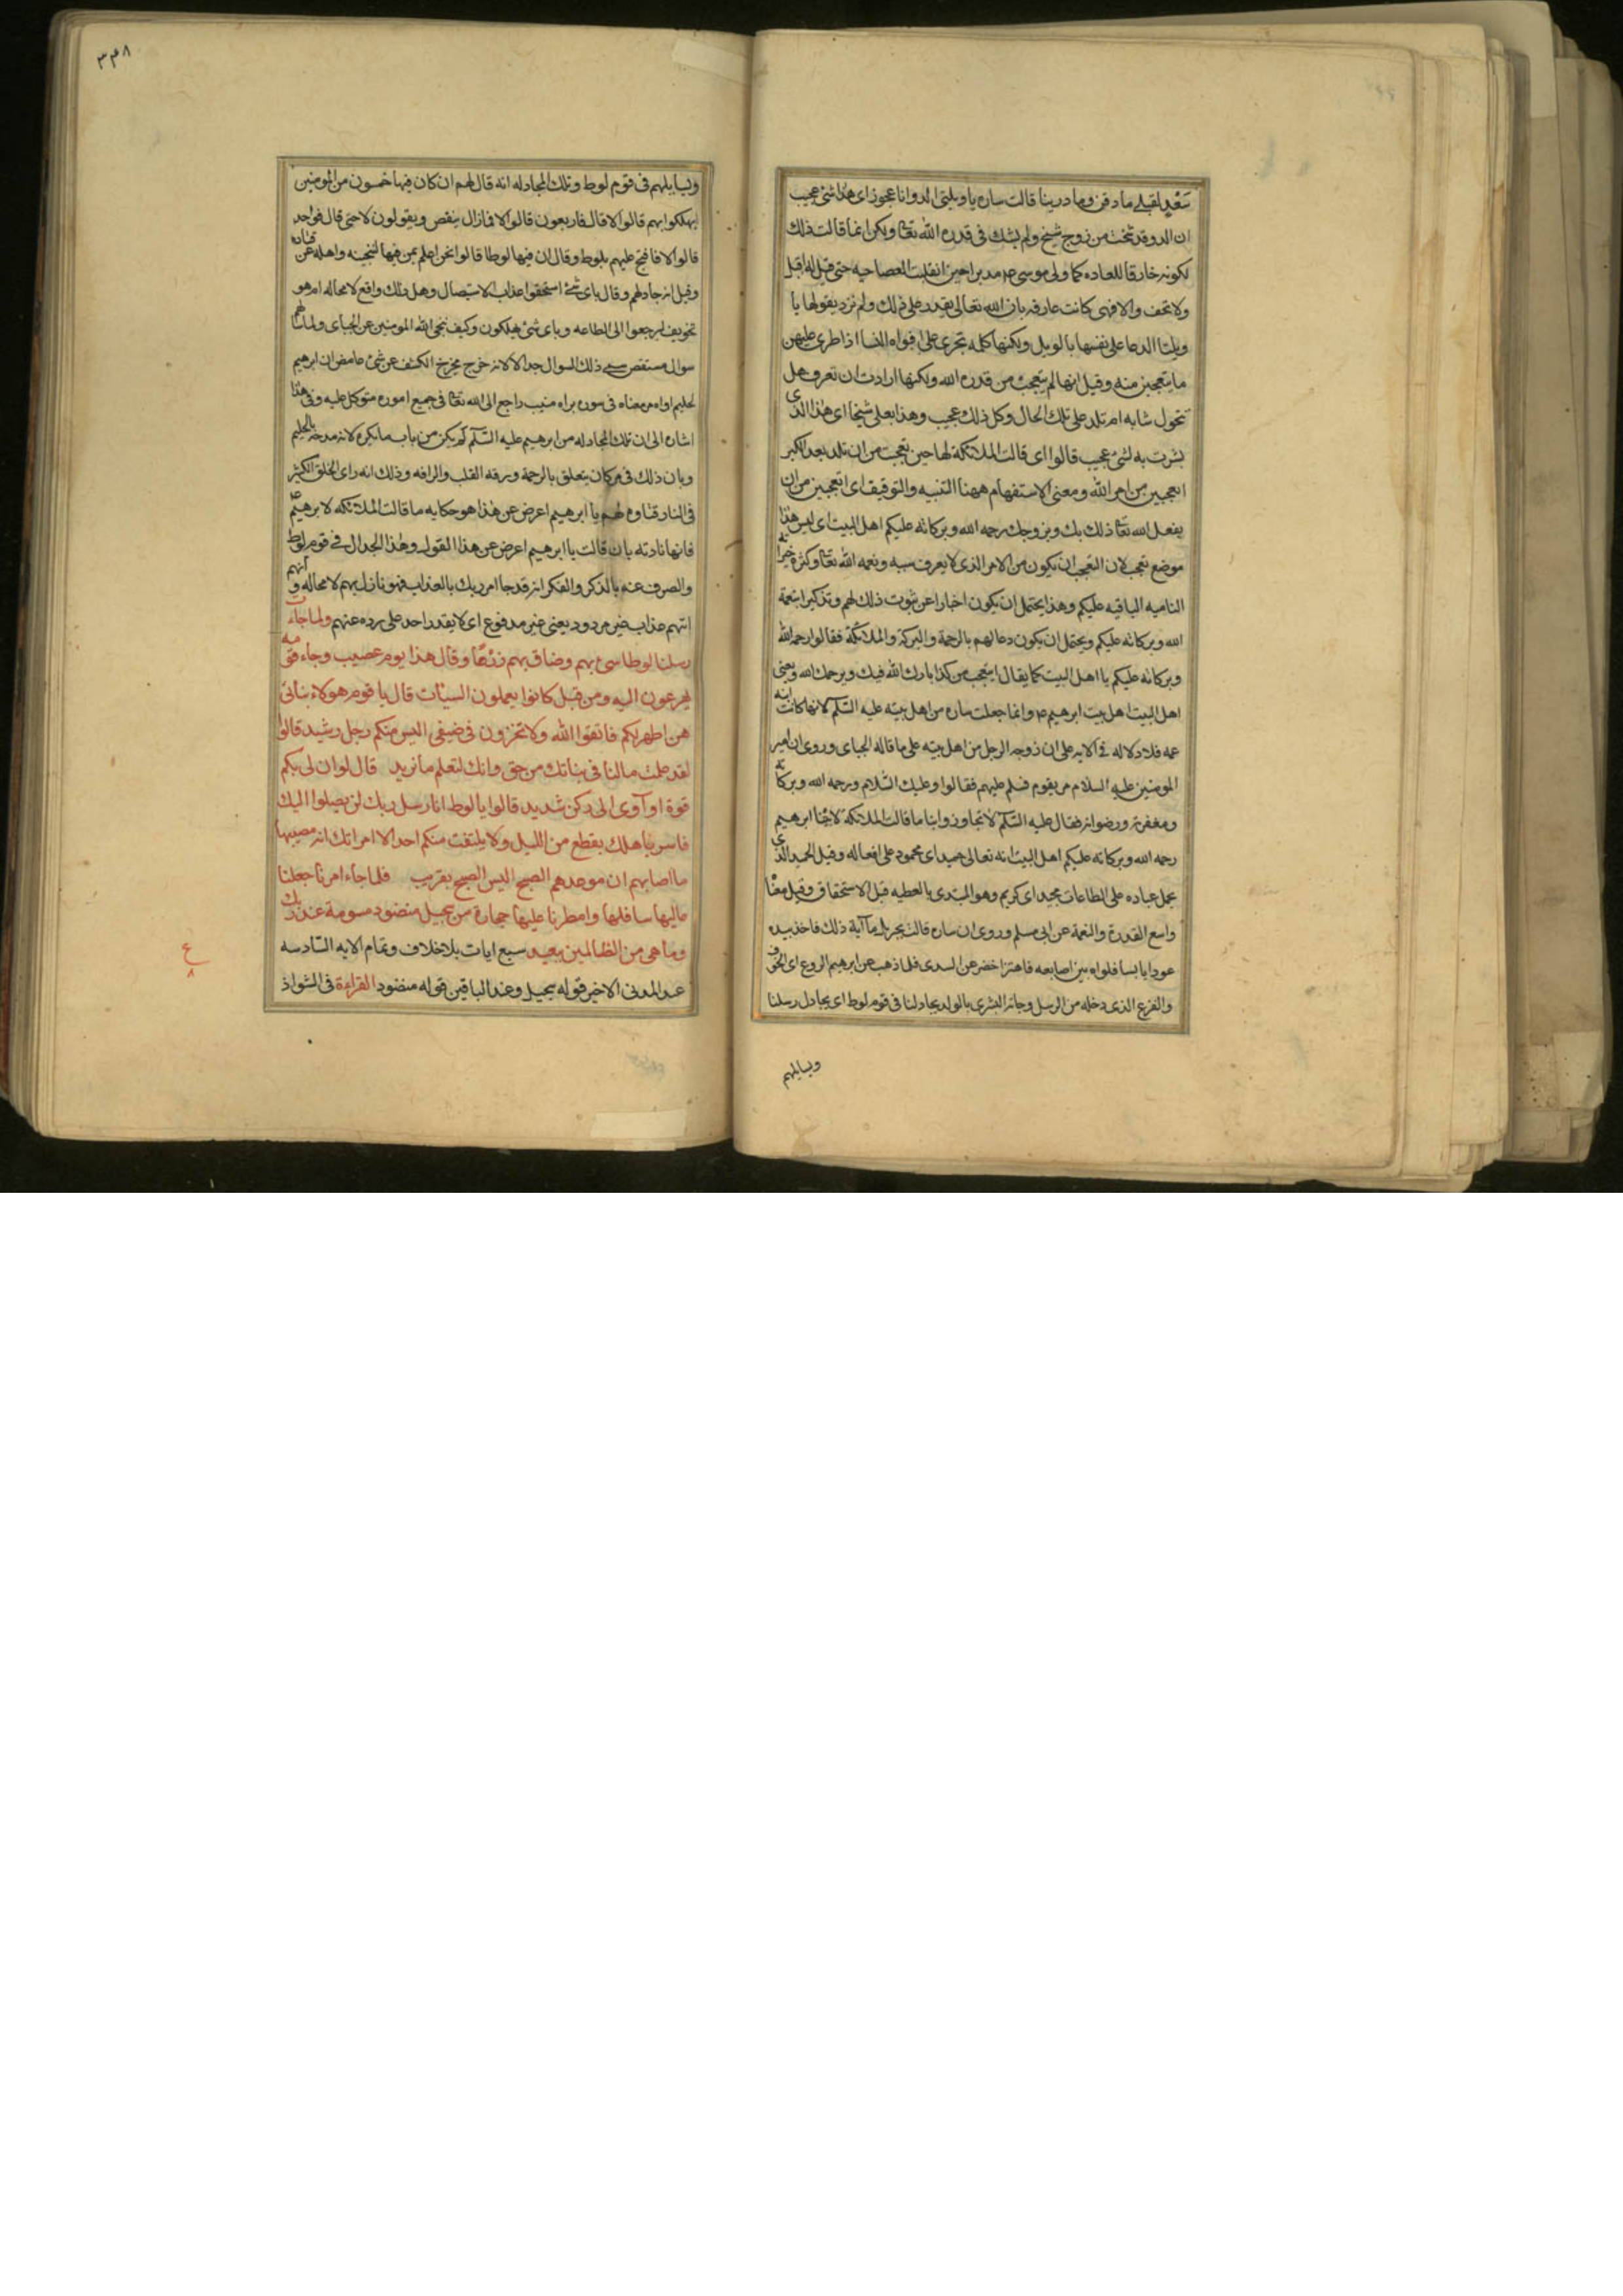 قالت ساره يا ويلتى االد وانا عجوز اى هذا شئ عجيب
ان الد وقد شخت من زوج شيخ ولم يشك فى قدره الله تعا ولكن انما قالت ذلك
لكونه خارقا للعاده كما ولى موسى مدبرا حين انقلبت العصا حيه حتى قيل له اقبل
ولا تخف والا فهى كانت عارفه بان الله تعالى يقدر على ذلك ولم ترد بقولها يا
ويلتا الدعا على نفسها بالويل ولكنها كلمه تجرى على افواه النسا اذا طرى عليهن
ما يتعجبن منه وقيل انها لم يتعجب من قدره الله ولكنها ارادت ان تعرف هل
تحول شابه ام تلد على تلك الحال وكل ذلك عجيب وهذا بعلى شيخا اى هذا الذى
بشرت به لشئ عجيب قالوا اى قالت الملائكة لها حين تعجبت من ان تلد بعد الكبر
اتعجبين من امر الله ومعنى الاستفهام ههنا التنبيه والتوقيف اى اتعجبين من ان
يفعل الله تعا ذلك بك وبزوجك رحمه الله وبركاته عليكم اهل البيت اى ليس هذا
موضع تعجب لان التعجب ان يكون من الامر الذى لا يعرف سببه ونعمه الله تعا وكثرة خيراته
الناميه الباقيه عليكم وهذا يحتمل ان يكون اخبارا عن ثبوت ذلك لهم وتذكيرا بنعمة
الله وبركاته عليكم ويحتمل ان يكون دعا لهم بالرحمة والبركة والملائكة فقالوا رحمه الله
وبركاته عليكم يا اهل البيت كما يقال اتتعجب من كذا بارك الله فيك ويرحمك الله ويعنى
اهل البيت اهل بيت ابرهيم وانما جعلت ساره من اهل بيته عليه السّلم لانها كانت ابنه
عمه فلا دلاله فى الايه على ان زوجه الرجل من اهل بيته على ما قاله الجباى وروى ان امير
المومنين عليه السلام مر بقوم فسلم عليهم فقالوا وعليك السّلام ورحمه الله وبركاته
ومغفرته ورضوانه فقال عليه السّلم لا تجاوزوا بنا ما قالت الملائكة لابينا ابرهيم
رحمه الله وبركاته عليكم اهل البيت انه تعالى حميد اى محمود على افعاله وقيل الحميد الذى
يحمل عباده على الطاعات مجيد اى كريم وهو المبتدى بالعطيه قبل الاستحقاق وقيل معناه
واسع القدرة والنعمة عن ابى مسلم وروى ان ساره قالت لجبريل ما آية ذلك فاخذ بيده
عودا يابسا فلواه بين اصابعه فاهتز اخضر عن السدى فلما ذهب عن ابرهيم الروع اى الخوف
والفزع الذى دخله من الرسل وجاءته البشرى بالولد يجادلنا فى قوم لوط اى يجادل رسلنا
ويسايلهم
٣٣٨
ويسايلهم فى قوم لوط وتلك المجادله انه قال لهم ان كان فيها خمسون من المومنين
اتهلكوانهم قالوا لا قال فاربعون قالوا لا فمازال ينقص ويقولون لا حتى قال فواحد
قالوا لا فاحتج عليهم بلوط وقال ان فيها لوطا قالوا نحن اعلم بمن فيها لننجينه واهله عن قتاده
وقيل انه جادلهم وقال باى شئ استحقوا عذاب الاستيصال وهل ذلك واقع لا محاله ام هو
تخويف ليرجعوا الى الطاعه وباى شئ يهلكون وكيف ينجى الله المومنين عن الجباى ولما سالهم
سوال مستقص سمى ذلك السوال جدالا لانه خرج مخرج الكشف عن شئ غامض ان ابرهيم
لحليم اواه مر معناه فى سوره براه منيب راجع الى الله تعا فى جميع اموره متوكل عليه وفى هذا
اشاره الى ان تلك المجادله من ابرهيم عليه السّلم لم يكن من باب ما يكره لانه مدحه بالحليم
وبان ذلك فى امر كان يتعلق بالرحمة ورقه القلب والرافه وذلك انه راى الخلق الكثير
فى النار فتاوه لهم يا ابرهيم اعرض عن هذا هو حكايه ما قالت الملائكه لابرهيم
فانها نادته بان قالت يا ابرهيم اعرض عن هذا القول وهذا الجدال فى قوم لوط
والصرف عنه بالذكر والفكر انه قد جا امر ربك بالعذاب فهو نازل بهم لا محاله وانهم
اتيهم عذاب غير مردود يعنى غير مدفوع اى لا يقدر احد على رده عنهم ولما جاءت
رسلنا لوطا سئ بهم وضاق بهم ذرعًا وقال هذا يوم عصيب وجاءه قومه
يهرعون اليه ومن قبل كانوا يعملون السيئات قال يا قوم هولاء بناتى
هن اطهر لكم فاتقوا الله ولا تخزون فى ضيفى اليس منكم رجل رشيد قالوا
لقد علمت مالنا فى بناتك من حق وانك لتعلم ما نريد قال لو ان لى بكم
قوة او آوى الى ركن شديد قالوا يا لوط انا رسل ربك لن يصلوا اليك
فاسر باهلك بقطع من الليل ولا يلتفت منكم احد الا امراتك انه مصيبها
ما اصابهم ان موعدهم الصبح اليس الصبح بقريب فلما جاء امرنا جعلنا
عاليها سافلها وامطرنا عليها حجارة من سجيل منضود مسومة عند ربك
وما هى من الظالمين ببعيد سبع ايات بلاخلاف وتمام الايه السّادسه
عند المدنى الاخير قوله سجيل وعند الباقين قوله منضود القراءة فى الشواذ
ع
٨